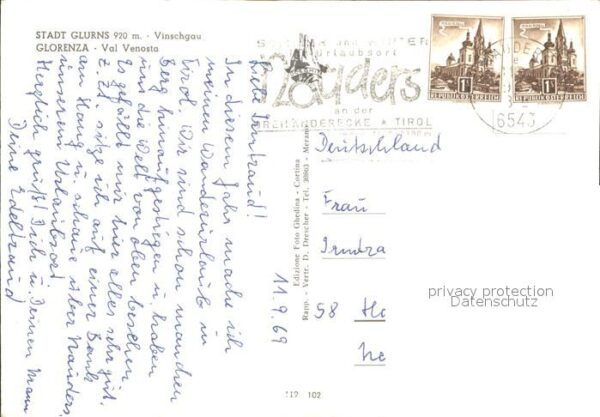 STADT GLURNS 920 m. - Vinschgau
GLORENZA - Val Venosta
In diesem Jahr mache ich
meinen Wanderurlaub in
Tirol. Wir sind schon manchen
Berg hinaufgestiegen u. haben
uns die Welt von oben besehen.
Es gefällt mir hier alles sehr gut.
z. Zt. sitze ich auf einer Bank
am Hang u. schaue über Nauders,
unserem Urlaubsort.
Herzlich grüßt Dich u. Deinen Mann
Deine Edeltraud
11.9.69
Edizione Foto Ghedina - Cortina
Rapp. - Vertr. D. Drescher - Tel. 3093 - Merano
SOMMER und WINTER
Urlaubsort
Nauders
an der
DREILÄNDERECKE * TIROL
NAUDERS
6543
REPUBLIK ÖSTERREICH
REPUBLIK ÖSTERREICH
Deutschland
Frau
58
privacy protection
Datenschutz
112 102